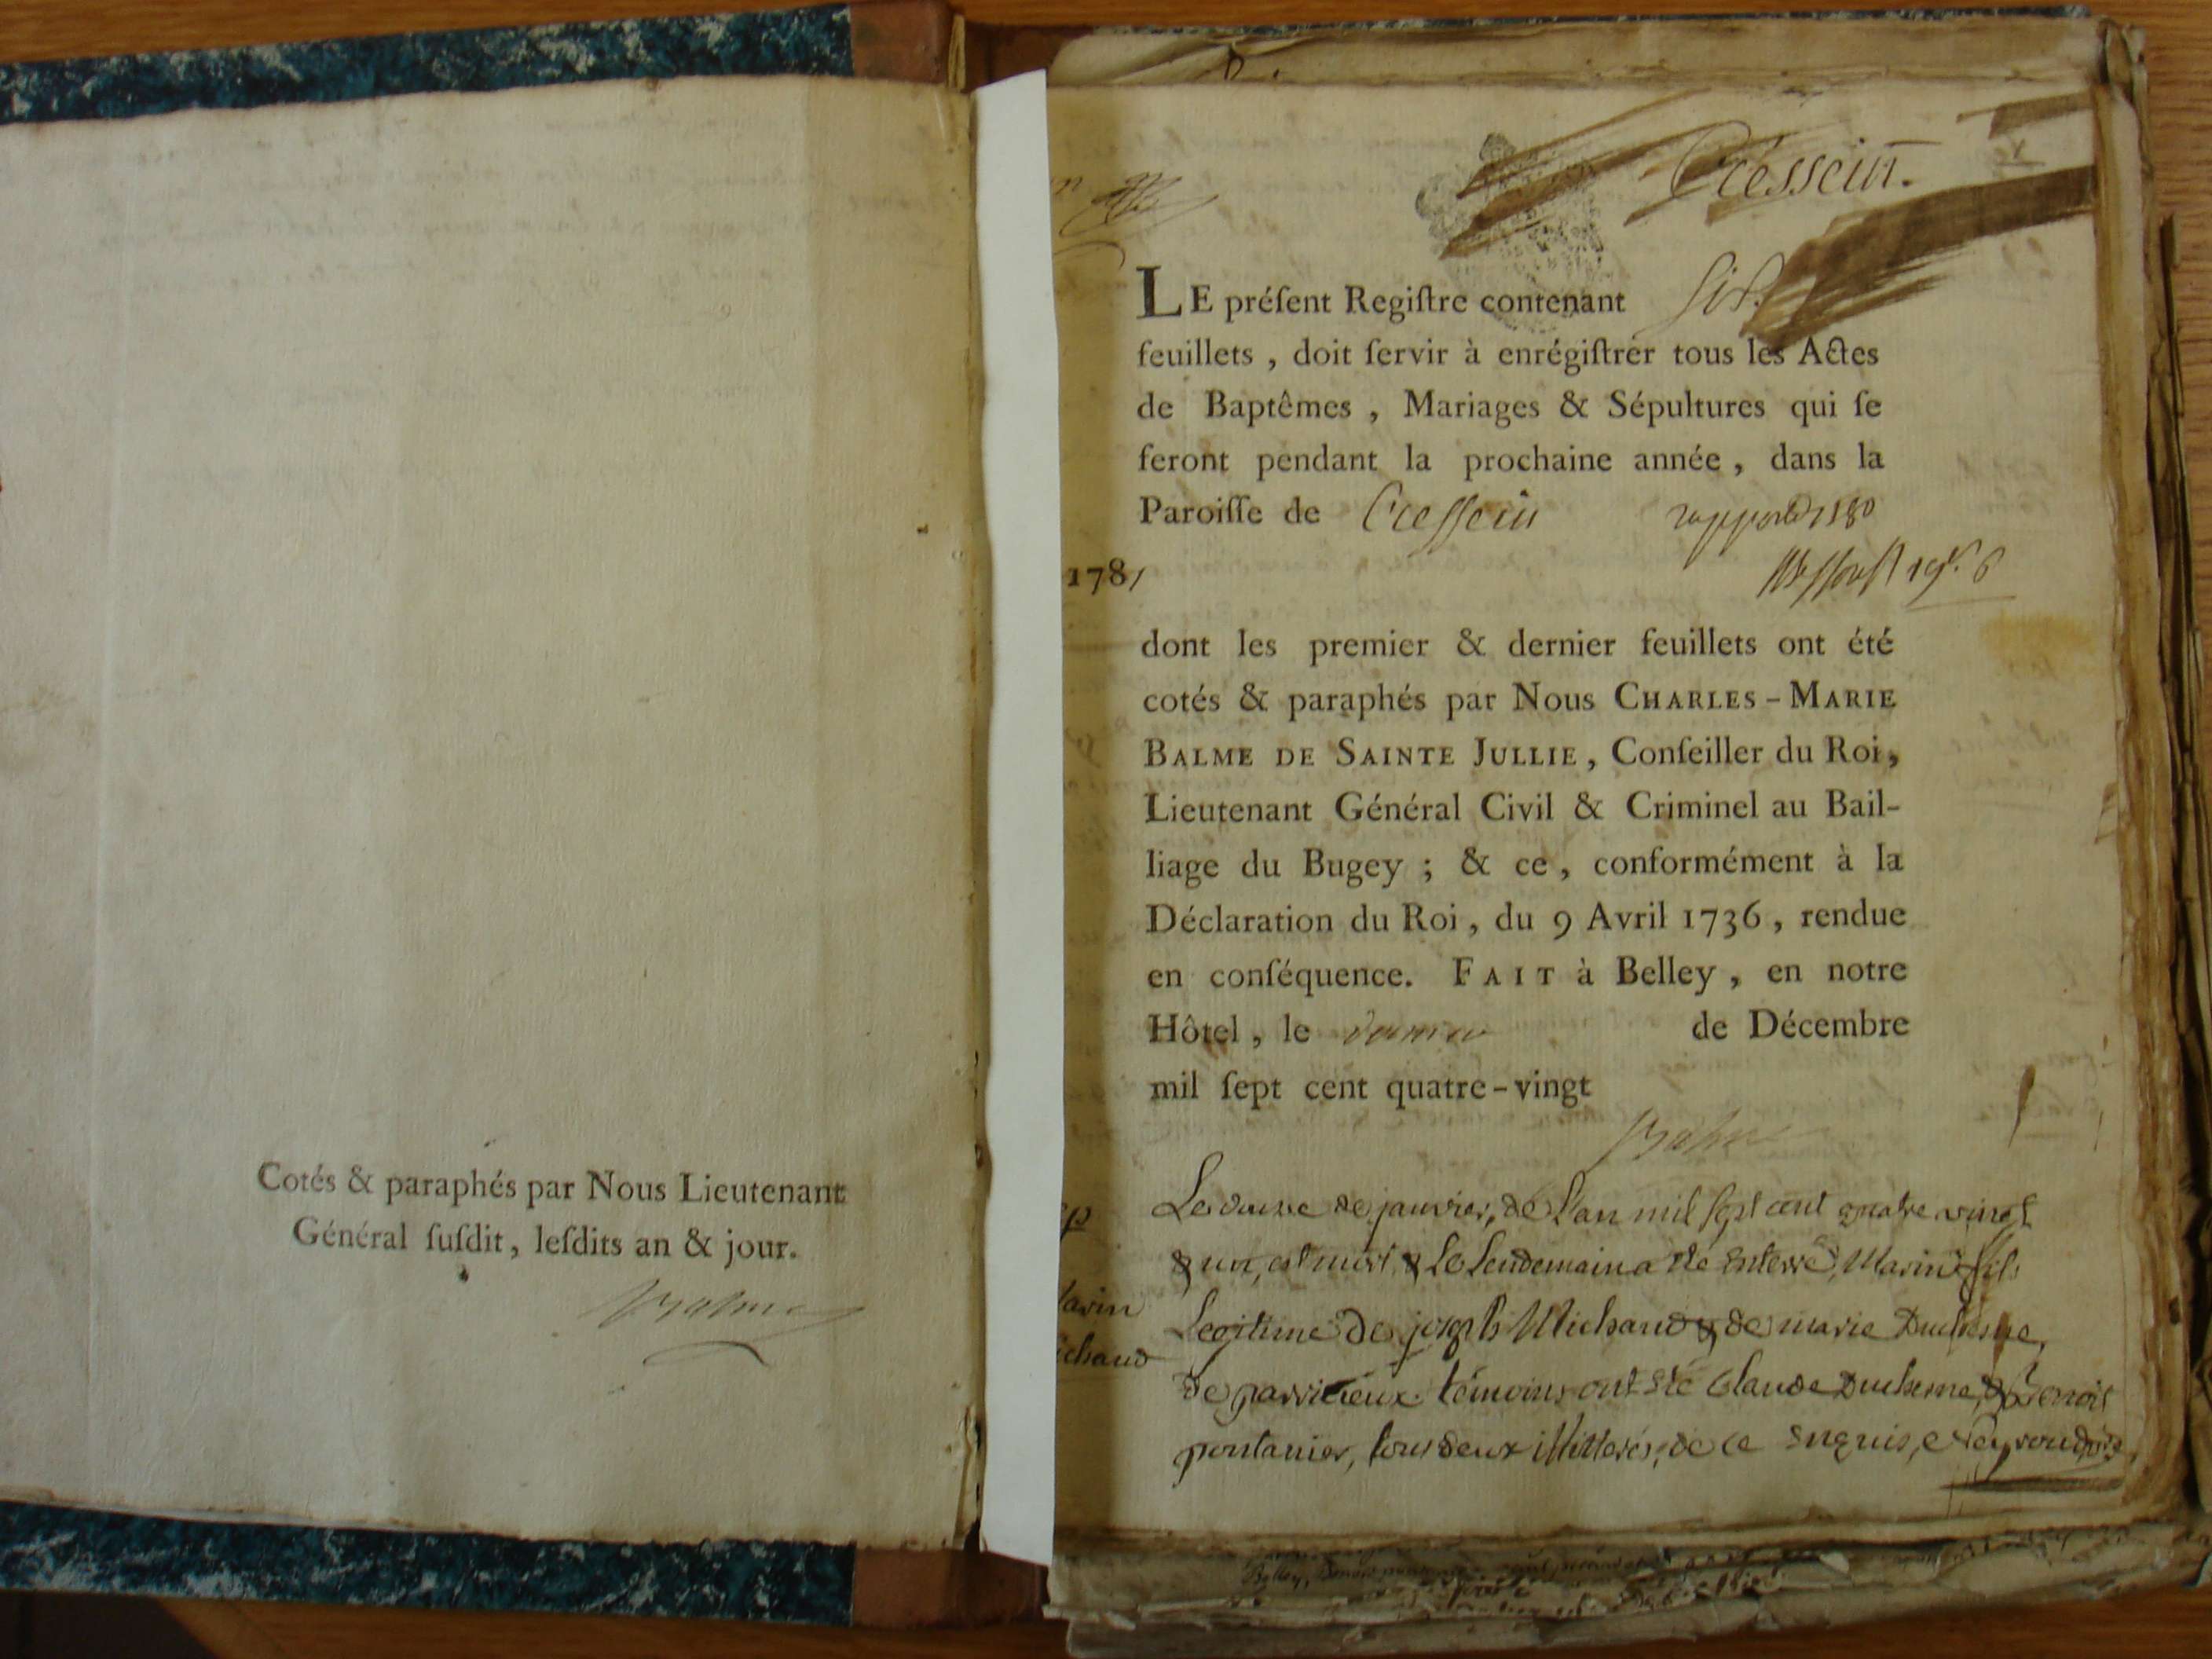 Cotés & paraphés par Nous Lieutenant
Général ſuſdit, leſdits an & jour.
Balme
Cressein.
LE préſent Regiſtre contenant six
feuillets, doit ſervir à enrégiſtrer tous les Actes
de Baptêmes, Mariages & Sépultures qui ſe
feront pendant la prochaine année, dans la
Paroiſſe de Cressein
1781
dont les premier & dernier feuillets ont été
cotés & paraphés par Nous CHARLES-MARIE
BALME DE SAINTE JULLIE, Conſeiller du Roi,
Lieutenant Général Civil & Criminel au Bail-
liage du Bugey; & ce, conformément à la
Déclaration du Roi, du 9 Avril 1736, rendue
en conſéquence. FAIT à Belley, en notre
Hôtel, le dernier de Décembre
mil ſept cent quatre-vingt
Balme
Le douze de janvier, de l'an mil sept cent quatre vingt
& un, est mort & le lendemain a été enterré, Marin fils
arin
Legitime de joseph Michaud & de marie Duchesne,
ichaud
de parricieux. témoins ont été Claude Duchesne, & Benoit
pontanier, tous deux illitterés, de ce enquis,